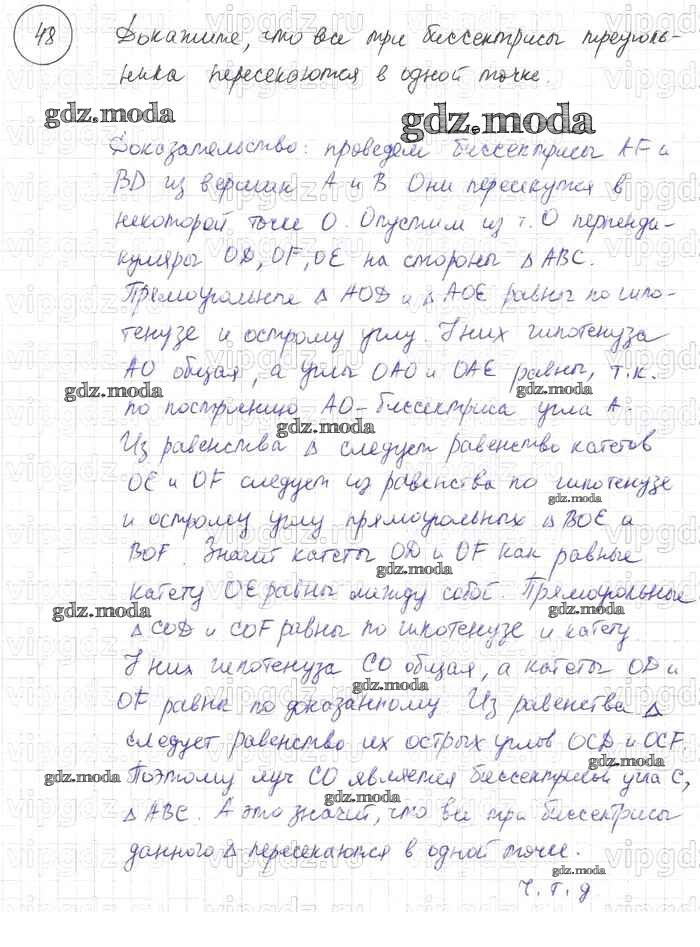 48 Докажите, что все три биссектрисы треуголь-
ника пересекаются в одной точке.
gdz.moda gdz.moda
Доказательство: проведем биссектрисы AF и
BD из вершин A и B Они пересекутся в
некоторой точке O. Опустим из т. O перпенди-
куляры OD, OF, OE на стороны △ ABC.
Прямоугольные △ AOD и △ AOE равны по гипо-
тенузе и острому углу. У них гипотенуза
AO общая, а углы OAO и OAE равны, т.к.
gdz.moda gdz.moda
по построению AO - биссектриса угла A.
gdz.moda
Из равенства △ следует равенство катетов
OE и OF следует из равенства по гипотенузе
gdz.moda
и острому углу прямоугольных △ BOE и
BOF. Значит катеты OD и OF как равные
gdz.moda
катету OE равны между собой. Прямоугольные
gdz.moda gdz.moda
△ COD и COF равны по гипотенузе и катету
У них гипотенуза CO общая, а катеты OD и
gdz.moda
OF равны по доказанному Из равенства △
следует равенство их острых углов OCD и OCF.
gdz.moda Поэтому луч CO является биссектрисой угла C,
gdz.moda
△ ABC. А это значит, что все три биссектрисы
данного △ пересекаются в одной точке.
gdz.moda
ч. т. д